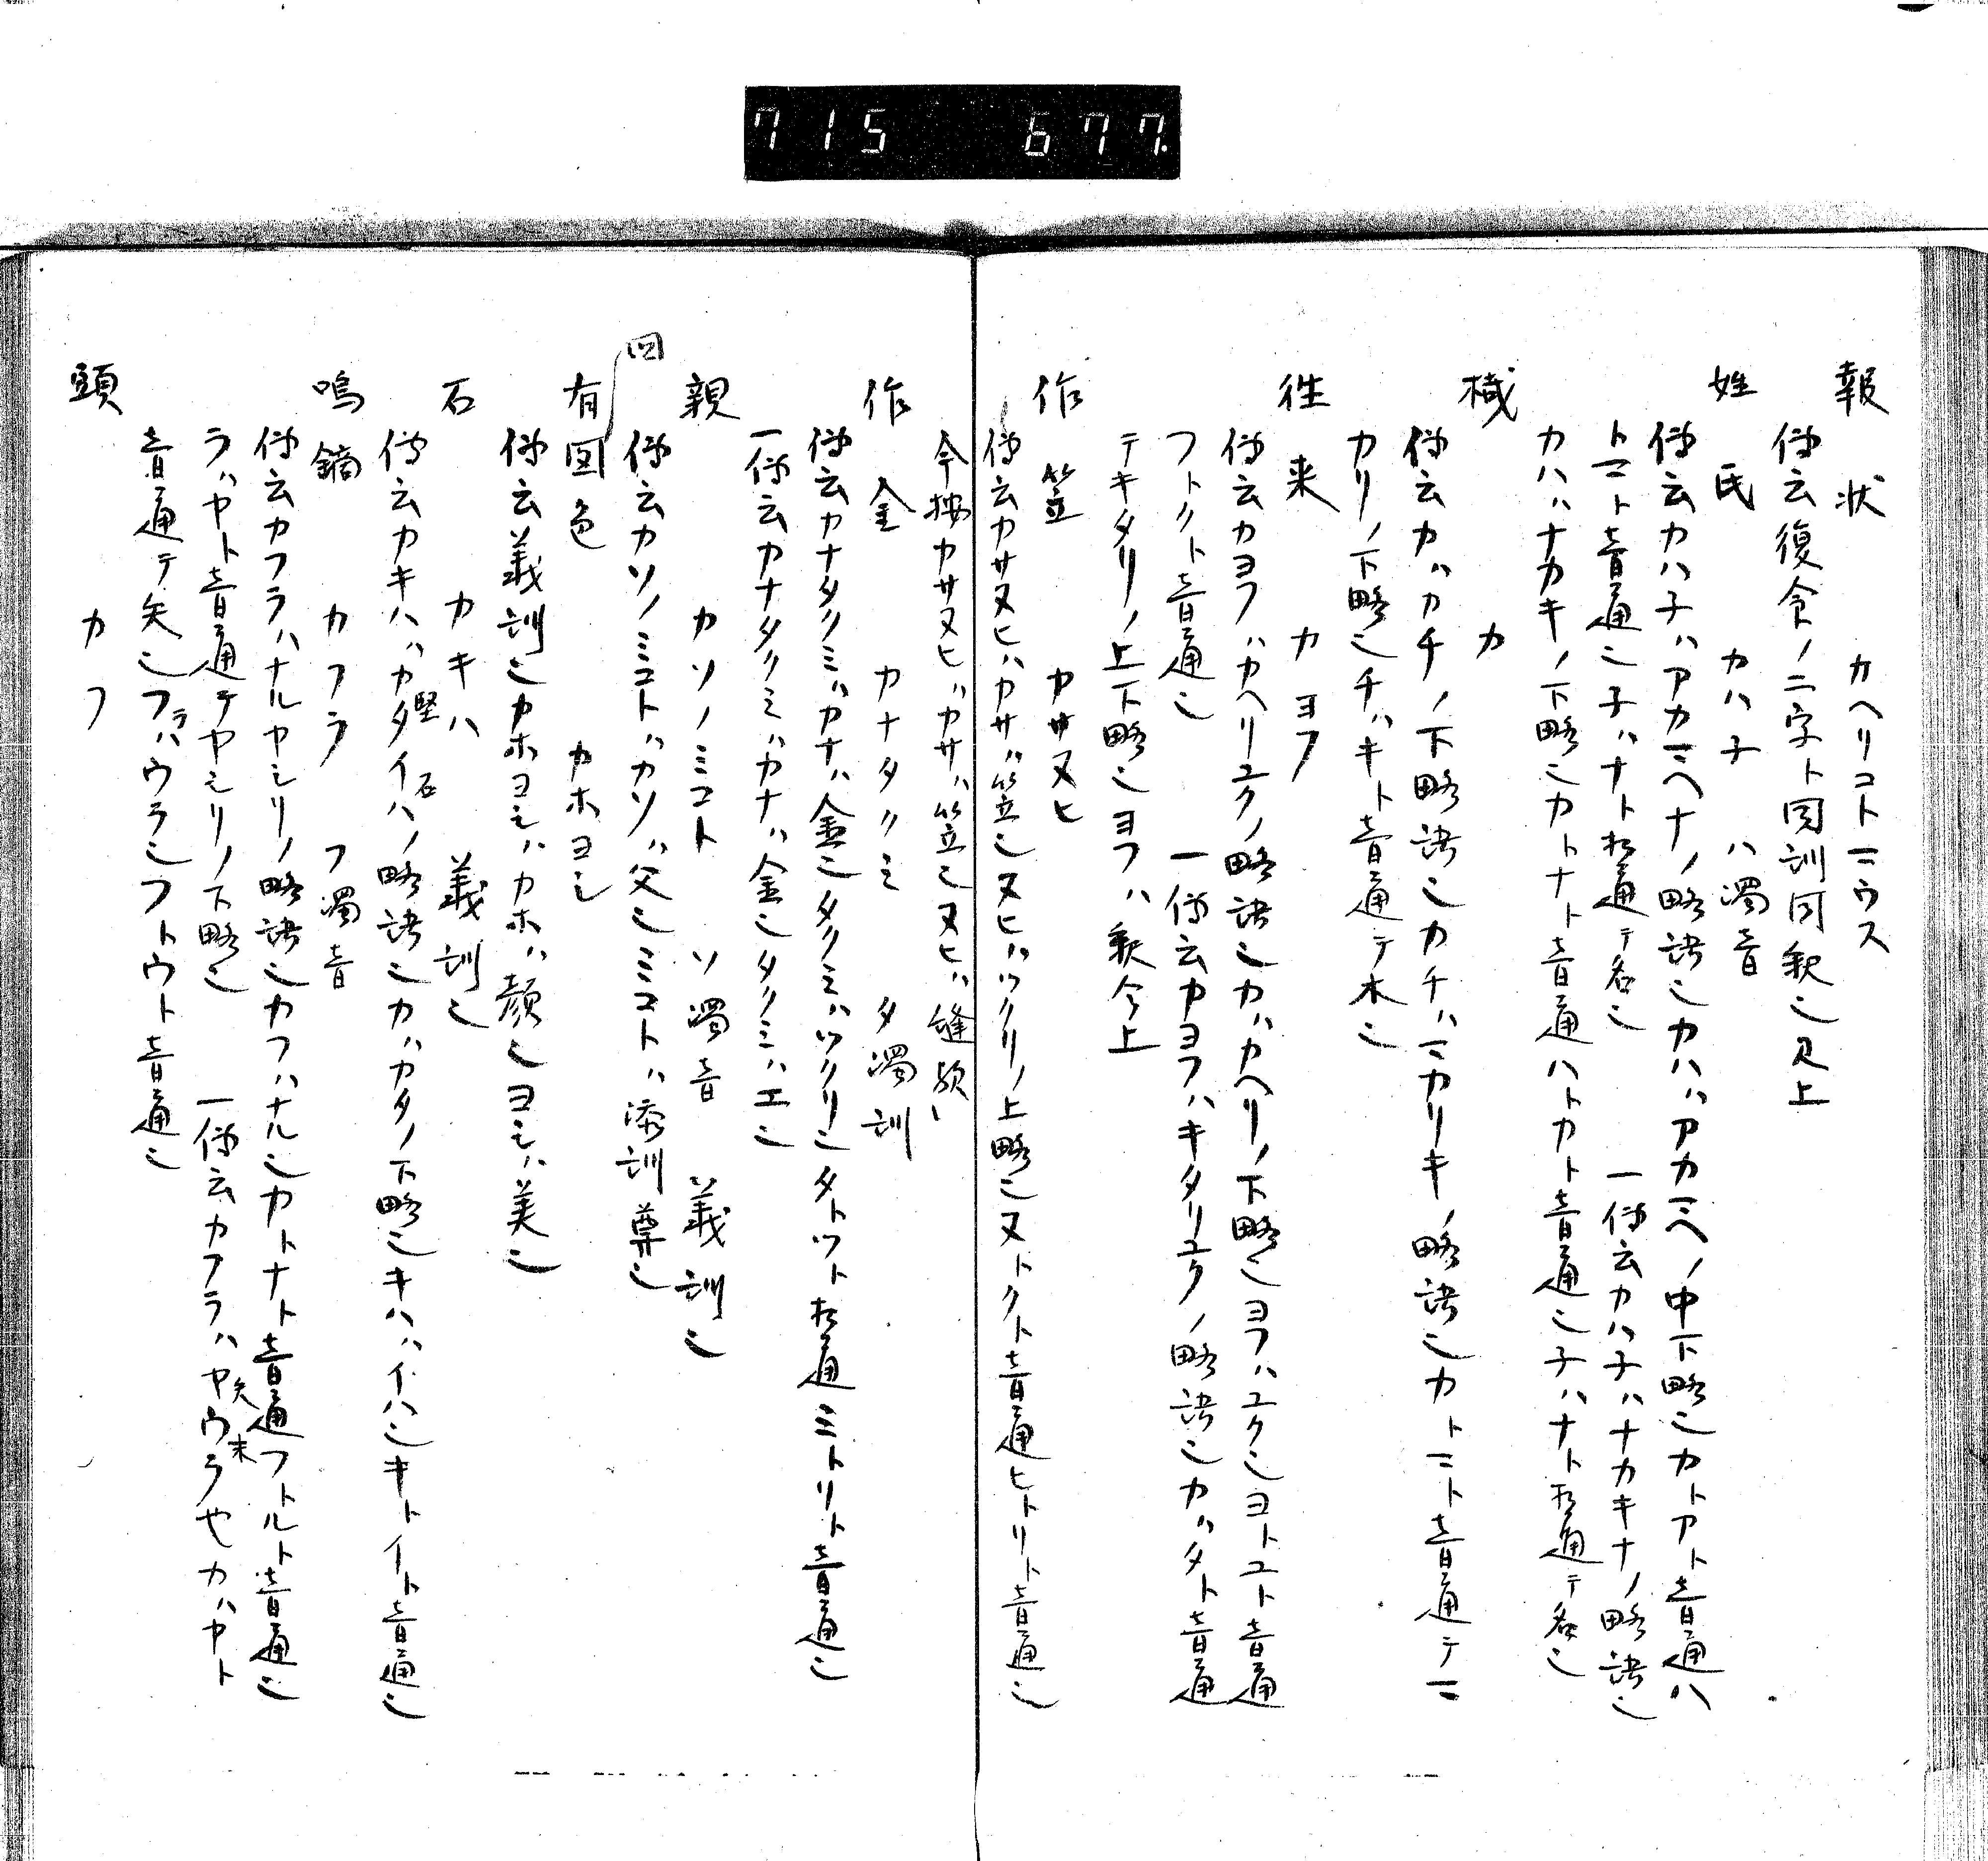 715 677.
報状 カヘリコトマウス
傳云復命ノ二字ト同訓同釈也見上
姓氏 カハ子 ハ濁音
傳云カハ子ハアカマヘナノ略語也カハハアカマヘノ中下略也カトアト音通ハ
トマト音通也子ハナト相通テ名也 一傳云カハ子ハナカキナノ略語也
カハハナカキノ下略也カトナト音通ハトカト音通也子ハナト相通テ名也
樴 カ
傳云カハカチノ下略語也カチハマカリキノ略語也カトマト音通テマ
カリノ下略也チハキト音通テ木也
往来 カヨフ
傳云カヨフハカヘリユクノ略語也カハカヘリノ下略也ヨフハユク也ヨトユト音通
フトクト音通也 一傳云カヨフハキタリユクノ略語也カハタト音通
テキタリノ上下略也ヨフハ釈今上
作笠 カサヌヒ
傳云カサヌヒハカサハ笠也ヌヒハツクリノ上略也ヌトクト音通ヒトリト音通也
今按カサヌヒハカサハ笠也ヌヒハ縫歟
作金 カナタクミ タ濁訓
傳云カナタクミハカナハ金也タクミハツクリ也タトツト相通ミトリト音通也
一傳云カナタクミハカナハ金也タクミハエ也
親 カソノミコト ソ濁音 義訓也
傳云カソノミコトハカソハ父也ミコトハ添訓尊也
有図色 カホヨシ
回
傳云義訓也カホヨシハカホハ顔也ヨシハ美也
石 カキハ 義訓也
傳云カキハハカタイハノ略語也カハカタノ下略也キハハイハ也キトイト音通也
堅 石
鳴鏑 カフラ フ濁音
傳云カフラハナルヤシリノ略語也カフハナル也カトナト音通フトルト音通也
ラハヤト音通テヤシリノ下略也 一傳云カフラハヤウラ也カハヤト
矢 末
音通テ矢也フラハウラ也フトウト音通也
頭 カフ